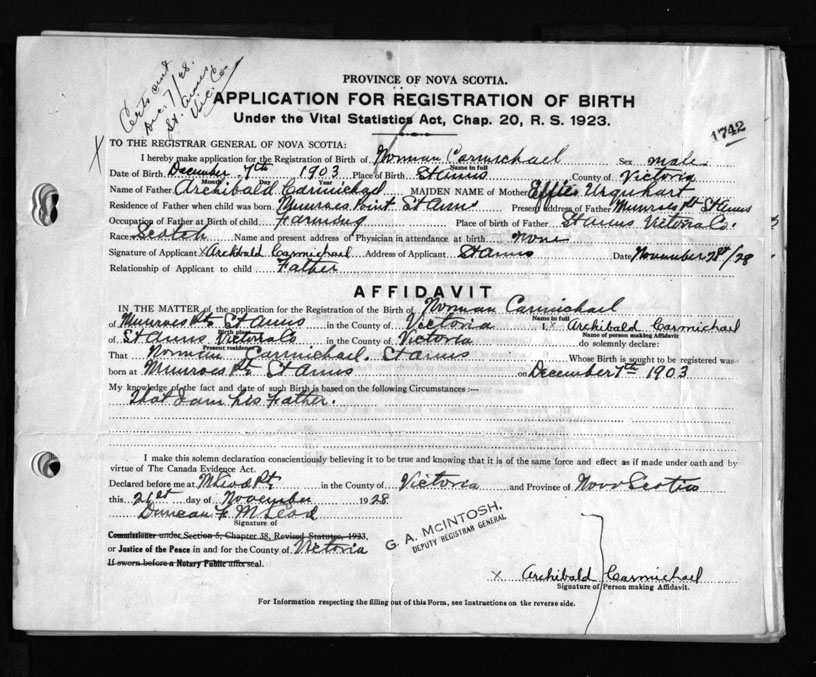 Certs out
Dec. 7/28.
St. Anns
Vic. Co.
PROVINCE OF NOVA SCOTIA.
APPLICATION FOR REGISTRATION OF BIRTH
Under the Vital Statistics Act, Chap. 20, R. S. 1923.
1742
X
TO THE REGISTRAR GENERAL OF NOVA SCOTIA:
I hereby make application for the Registration of Birth of Norman Carmichael Sex male
Name in full
Date of Birth December 7th 1903 Place of Birth St Anns County of Victoria
Month Day Year
Name of Father Archibald Carmichael MAIDEN NAME of Mother Effie Urquhart
Residence of Father when child was born Munroes Point St Anns Present address of Father Munroes Pt St Anns
Occupation of Father at Birth of child Farming Place of birth of Father St Anns Victoria Co.
Race Scotch Name and present address of Physician in attendance at birth None
Signature of Applicant x Archibald Carmichael Address of Applicant St Anns Date November /28
Relationship of Applicant to child Father
AFFIDAVIT
IN THE MATTER of the application for the Registration of the Birth of Norman Carmichael
Name in full
of Munroes Pt St Anns in the County of Victoria I, x Archibald Carmichael
Birth place Name of person making Affidavit
of St Anns Victoria Co in the County of Victoria do solemnly declare:
Present residence
That Norman Carmichael. St Anns Whose Birth is sought to be registered was
born at Munroes Pt St Anns on December 7th 1903
My knowledge of the fact and date of such Birth is based on the following Circumstances :—
That I am his Father.
I make this solemn declaration conscientiously believing it to be true and knowing that it is of the same force and effect as if made under oath and by
virtue of The Canada Evidence Act.
Declared before me at McLeod Pt in the County of Victoria and Province of Nova Scotia
this 21st day of November 1928
Duncan F. McLeod
Signature of
Commissioner under Section 5, Chapter 38, Revised Statutes, 1923,
or Justice of the Peace in and for the County of Victoria
If sworn before a Notary Public affix seal.
G. A. McINTOSH,
DEPUTY REGISTRAR GENERAL
x Archibald Carmichael
Signature of Person making Affidavit.
For Information respecting the filling out of this Form, see Instructions on the reverse side.